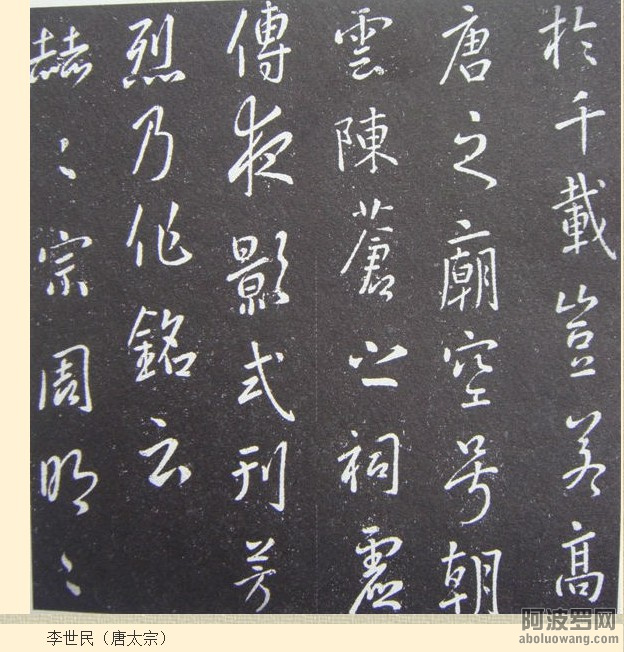 於千載豈若高
唐之廟空号朝
雲陳蒼之祠虛
傳夜影式刊芳
烈乃作銘云
赫〻宗周明〻
李世民（唐太宗）
阿波罗网
aboluowang.com